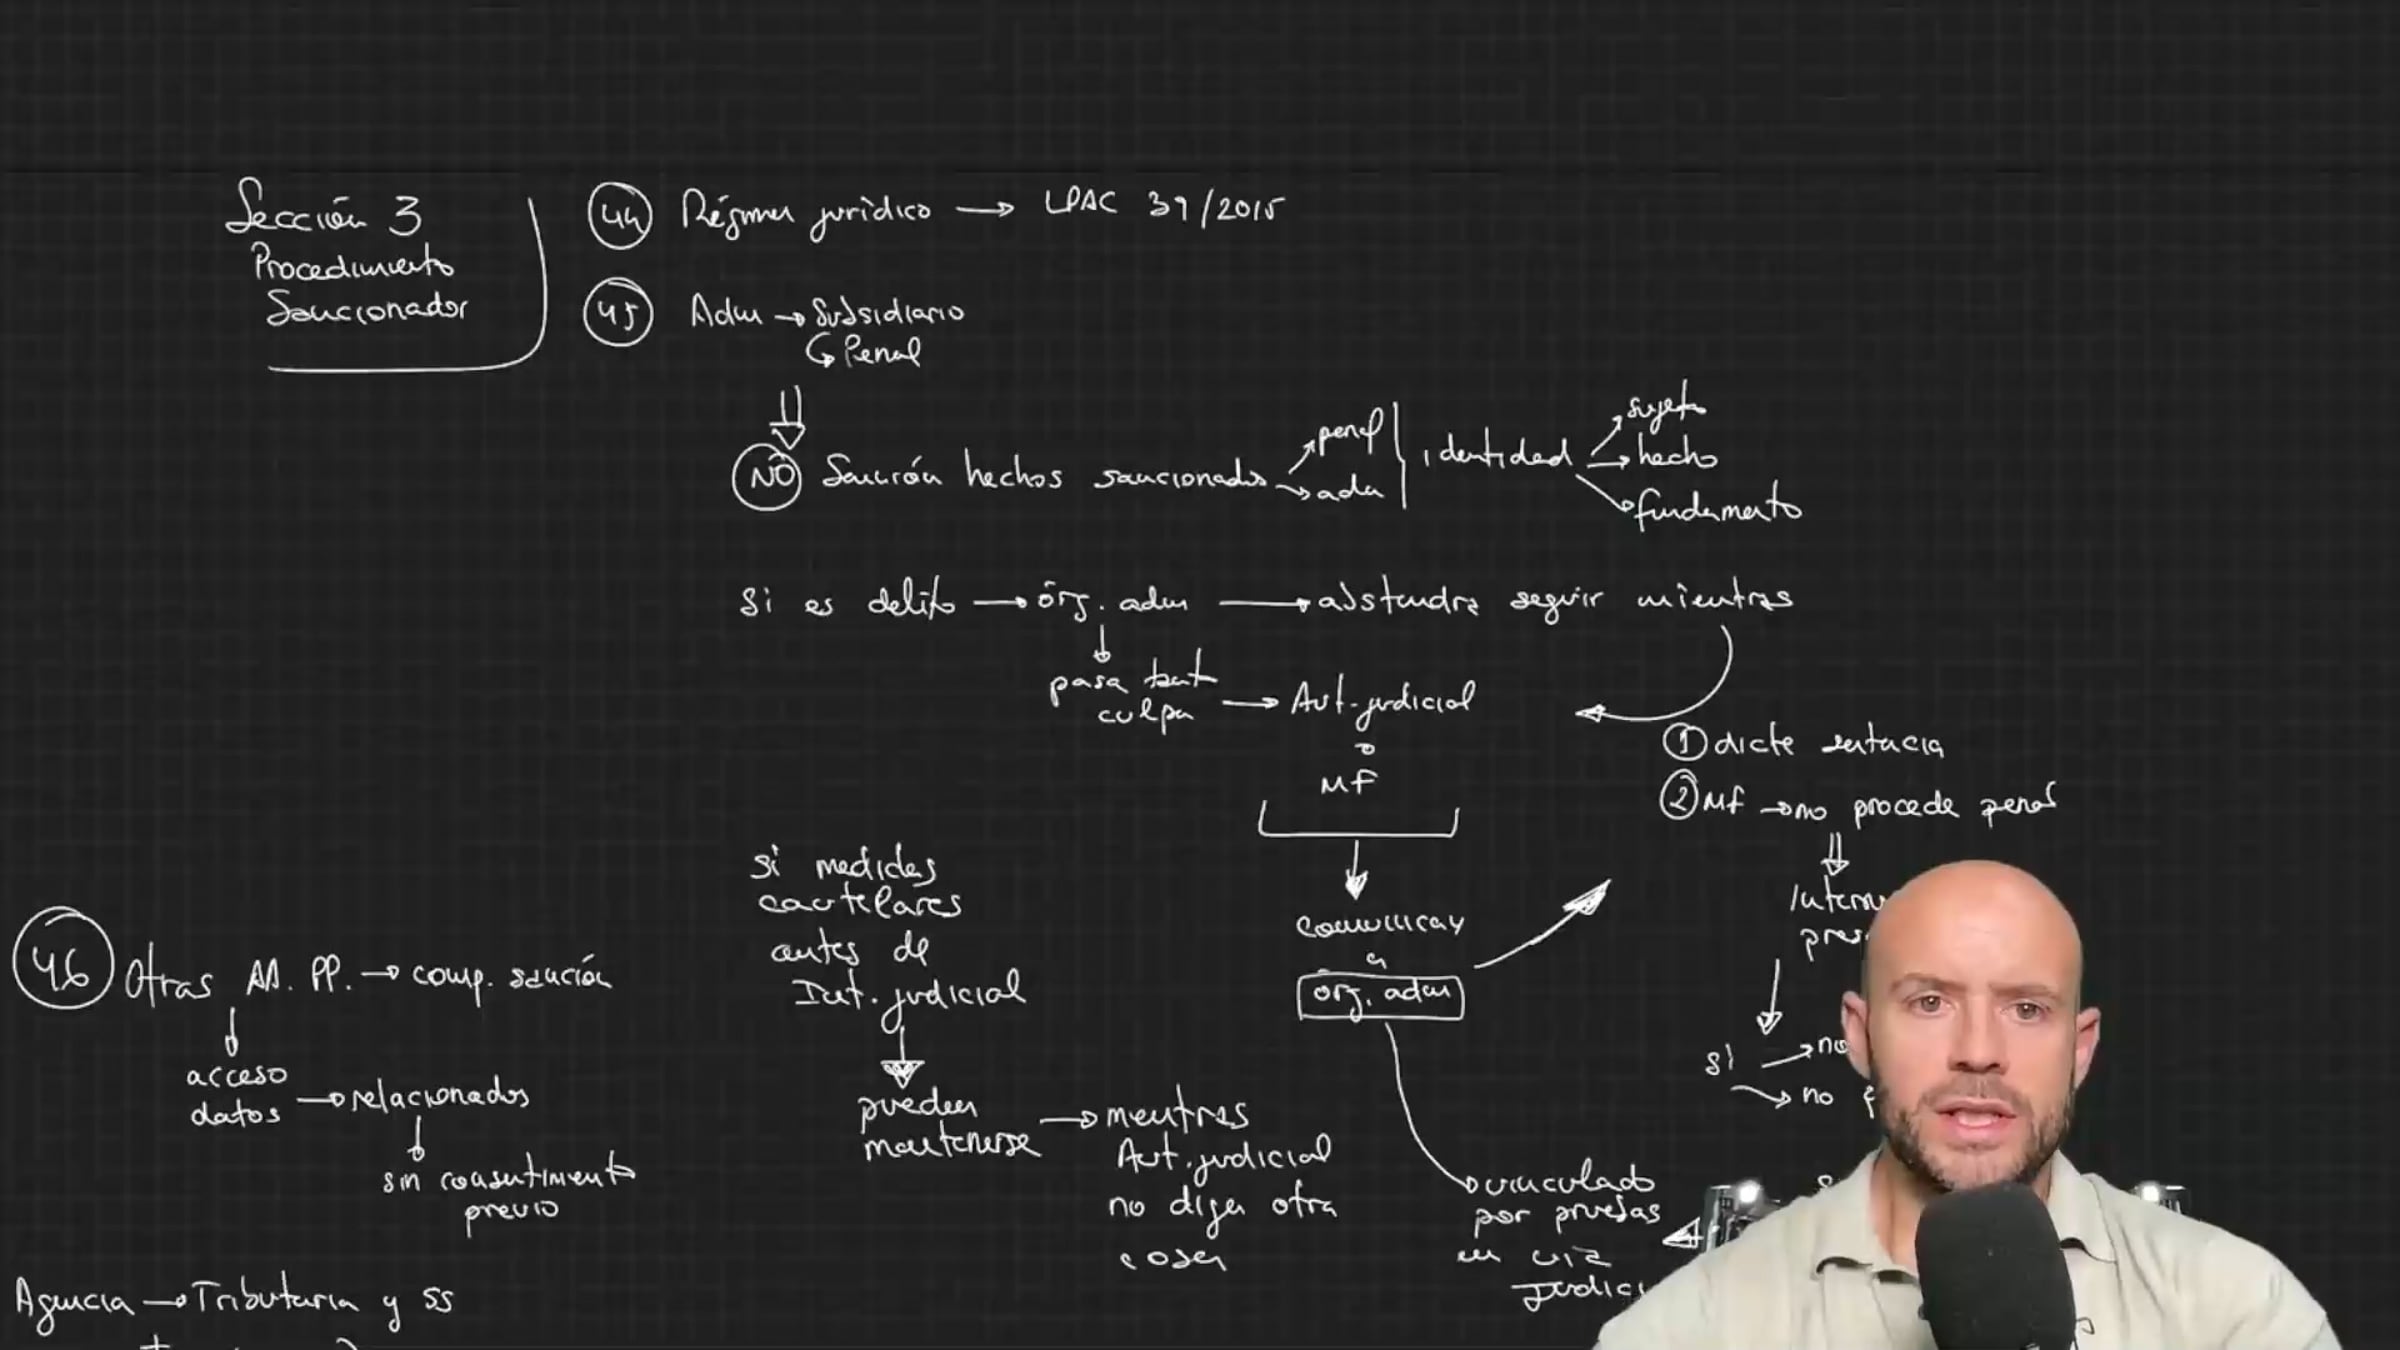 Sección 3
Procedimiento
Sancionador
44 Régimen jurídico → LPAC 39/2015
45 Adm → Subsidiario
↳ Penal
NO Sanción hechos sancionados → penal
→ adm
identidad → sujeto
→ hecho
→ fundamento
Si es delito → órg. adm → abstendrá seguir mientras
pasa tant
culpa → Aut. judicial
o
MF
① dicte sentencia
② MF → no procede penal
comunicar
a
org. adm
vinculado
por pruebas
en vía
si → no
→ no
si medidas
cautelares
antes de
Int. judicial
pueden
mantenerse → mientras
Aut. judicial
no diga otra
cosa
46 Otras AA. PP. → comp. sanción
acceso
datos → relacionados
sin consentimiento
previo
Agencia → Tributaria y SS